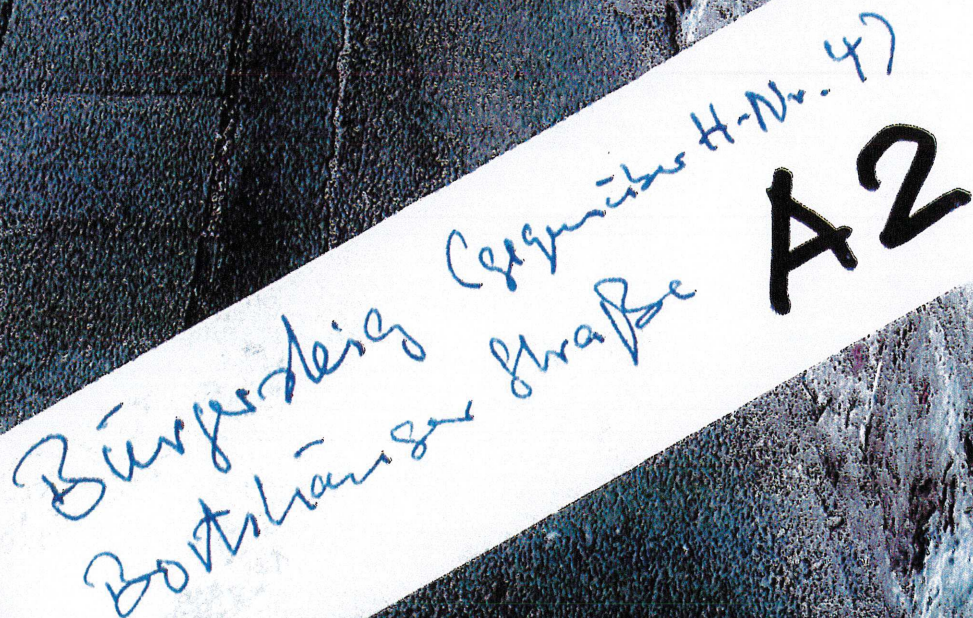 Bürgersteig (gegenüber H-Nr. 4)
Bootshäuser Straße
A2